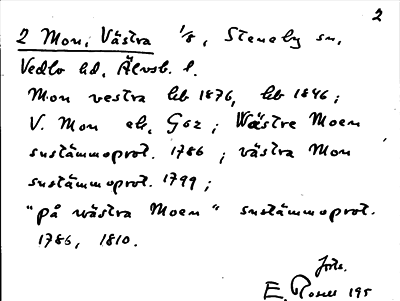 2
2 Mon, Västra 1/8, Steneby sn,
Vedbo hd, Älvsb. l.
Mon vestra hb 1876, hb 1846;
V. Mon ek, Gsz; Wästre Moen
sustämmoprot. 1786; västra Mon
sustämmoprot. 1799;
"på wästra Moen" sustämmoprot.
1786, 1810.
E. Rosell 195